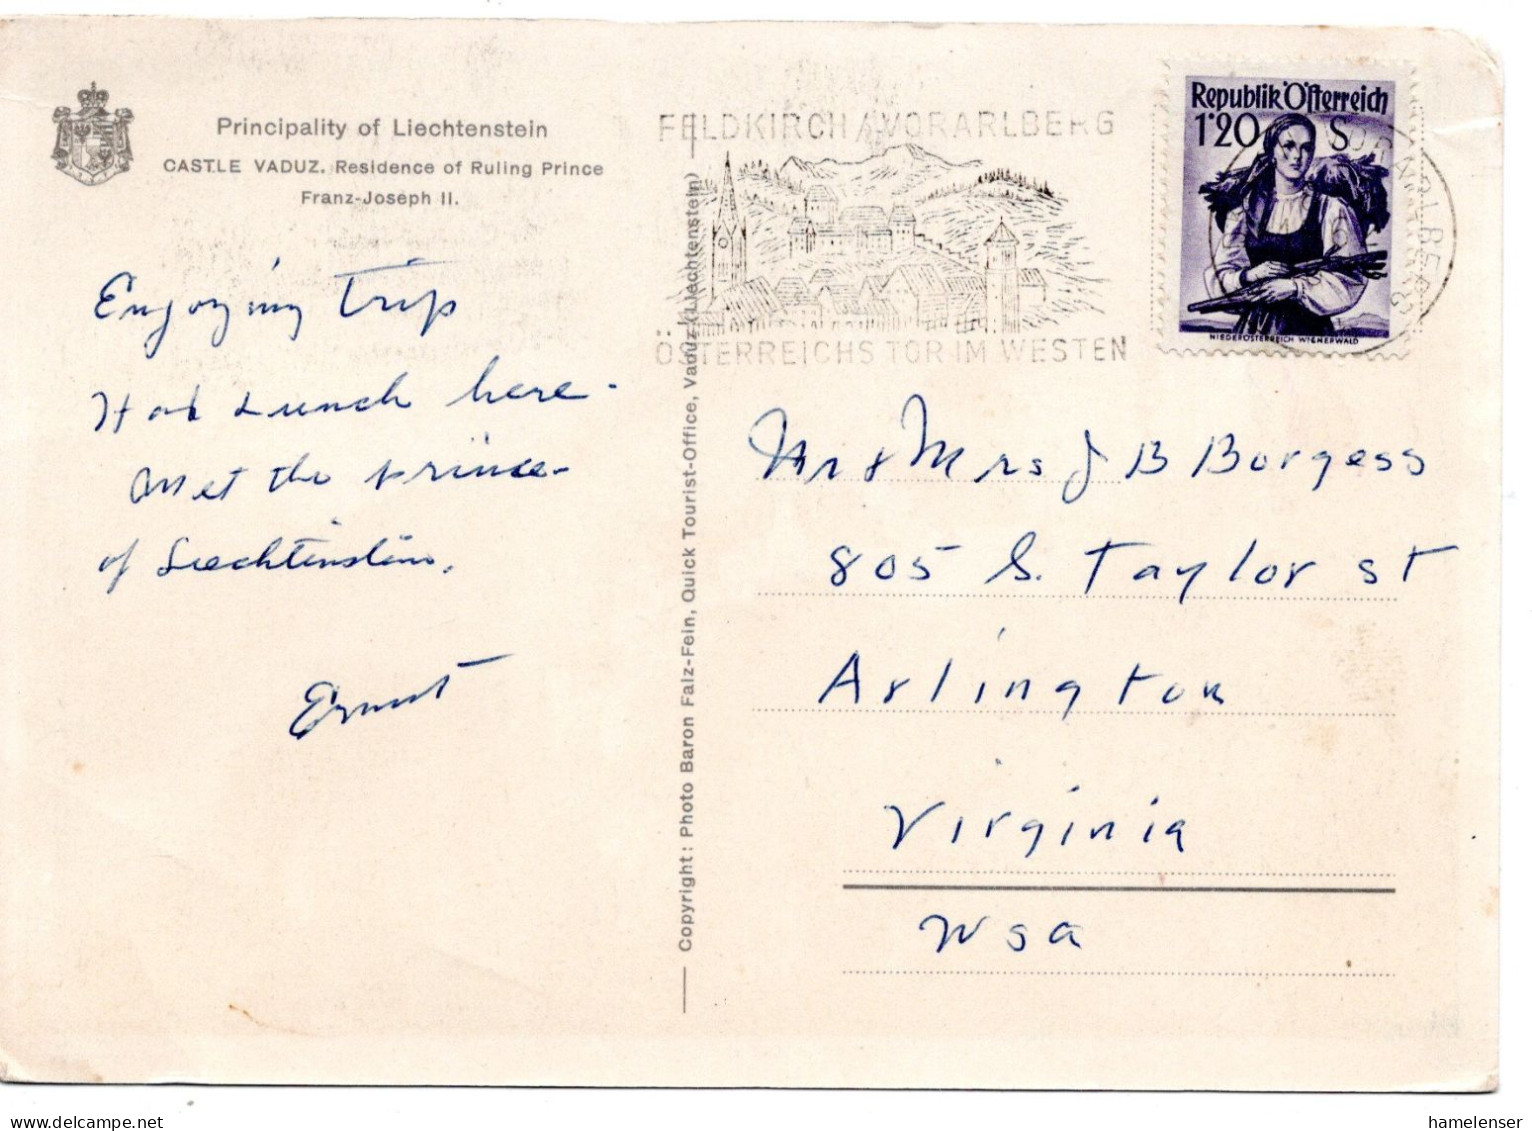 Principality of Liechtenstein
CASTLE VADUZ. Residence of Ruling Prince
Franz-Joseph II.
Enjoying trip
Had Lunch here.
Met the prince
of Liechtenstein.
Ernest
Copyright: Photo Baron Falz-Fein, Quick Tourist-Office, Vaduz (Liechtenstein)
FELDKIRCH / VORARLBERG
ÖSTERREICHS TOR IM WESTEN
Republik Österreich
1'20 S
NIEDERÖSTERREICH WIENERWALD
Mr & Mrs J B Borgess
805 S. Taylor st
Arlington
Virginia
USA
hamelenser
hamelenser.com